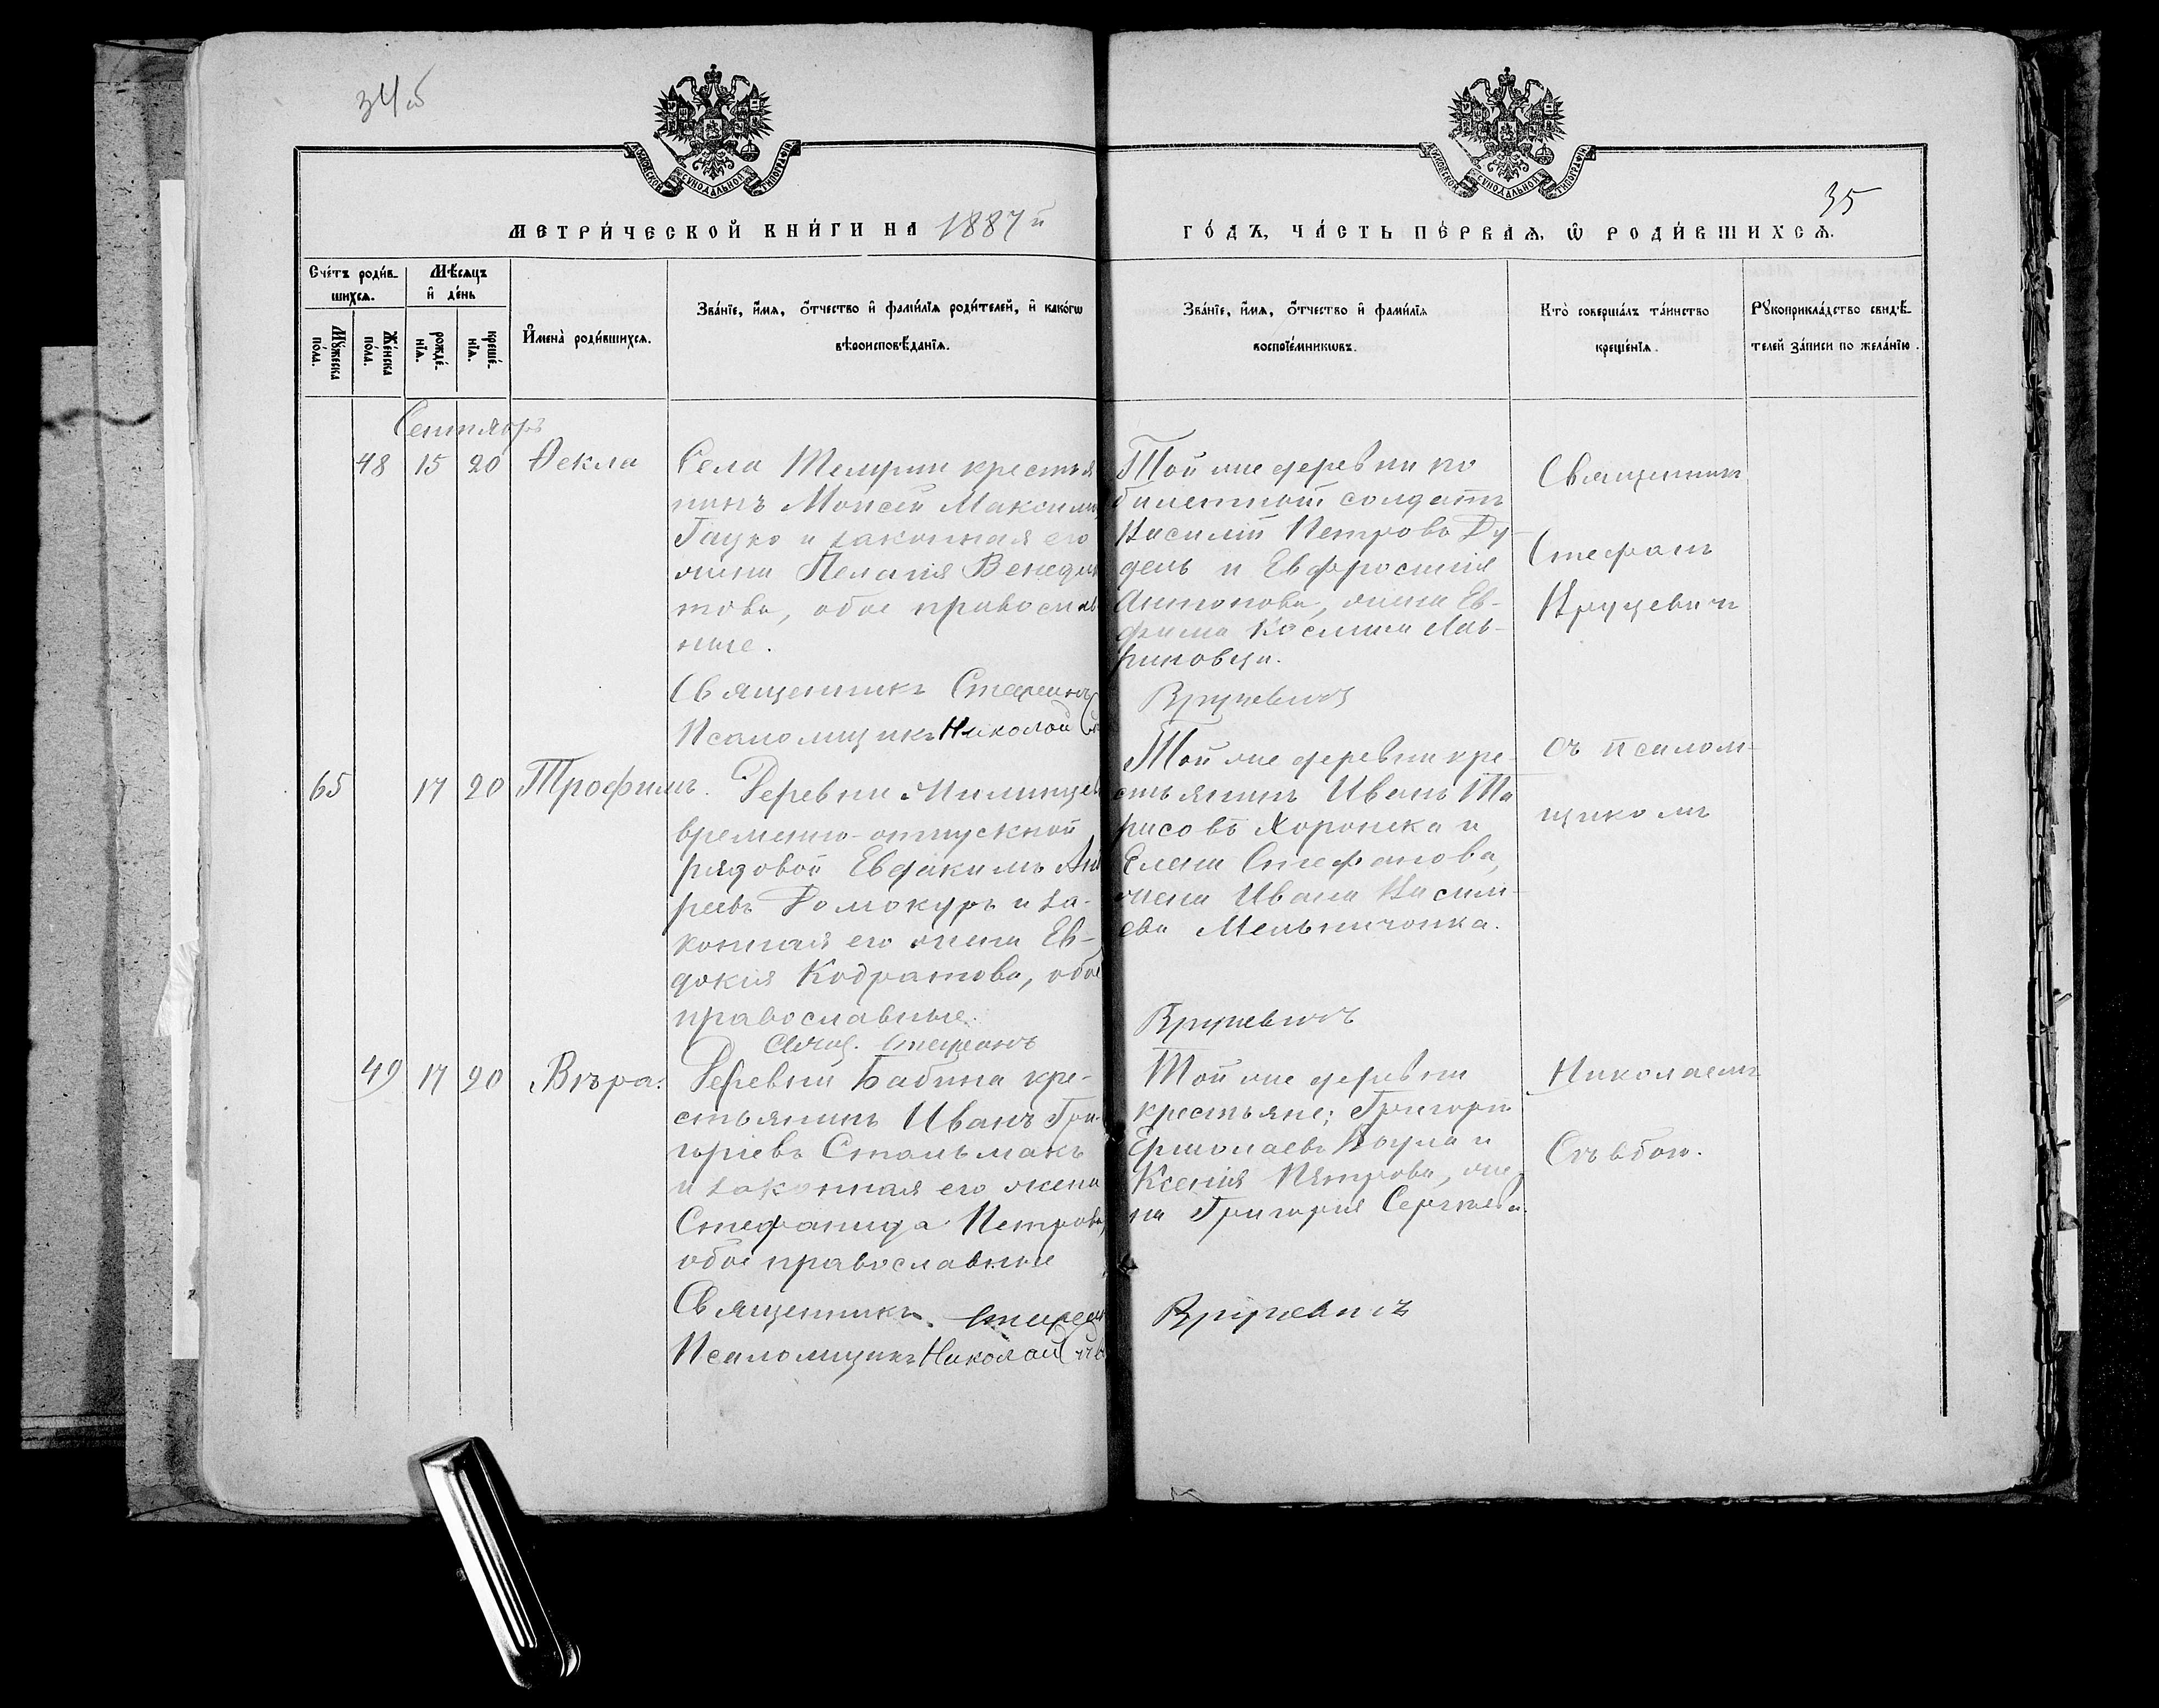 34об
35
МОСКОВСКОЙ СѴНОДАЛЬНОЙ ТИПОГРАФІИ
МОСКОВСКОЙ СѴНОДАЛЬНОЙ ТИПОГРАФІИ
МЕТРИ́ЧЕСКОЙ КНИ́ГИ НА 1887 й
ГО́ДЪ, ЧА́СТЬ ПЕ́РВАЯ, Ѡ РОДИ́ВШИХСЯ.
Сче́тъ роди́в-
шихся.
Мѣ́сяцъ
и҆ де́нь
Мꙋ́жеска по́ла.
Же́нска по́ла.
рожде́-нїя.
креще́-нїя.
И҆мена̀ роди́вшихся.
Зва́нїе, и҆́мя, ѻ҆́тчество и҆ фами́лїя роди́телей, и҆ како́гѡ
вѣроисповѣ́данїя.
Зва́нїе, и҆́мя, ѻ҆́тчество и҆ фами́лїя
воспрїе́мникѡвъ.
Кто̀ соверша́лъ та́инство
креще́нїя.
Рꙋкоприкла́дство свидѣ́-
телей за́писи по жела́нїю.
Сентябрь
48 15 20 Ѳекла
Села крестья
нинъ Моисей Максимо
Гацко и законная его
жена Пелагія Венедик
това, обое православ
ные.
Священникъ Стефанъ
Псаломщикъ Николай
Той же деревни по
билетной солдатъ
Василій Петровъ Ду-
дель и Евфросинія
Антонова, жена Ев-
фима Космина Лав-
риновца.
Священник
Стефанъ
65 17 20 Трофимъ.
Деревни
временно-отпускной
рядовой Евдакимъ Анд
реевъ Домокуръ и за-
конная его жена Ев-
докія Кодратова, обое
православные.
Свящ. Стефанъ
Той же деревни кре-
стьянинъ Иванъ Та
расовъ и
Елена Стефанова,
жена Ивана Василі-
ева Мельничонка.
съ псалом-
щикомъ
49 17 20 Вѣра.
Деревни Бабина кре-
стьянинъ Иванъ Гри-
горіевъ Стальмахъ
и законная его жена
Стефанида Петрова,
обое православные
Священникъ. Стефан
Псаломщикъ Николай
Той же деревни
крестьяне; Григорій
Ермолаевъ и
Ксенія Петрова, же-
на Григорія Сергѣева.
Николаемъ